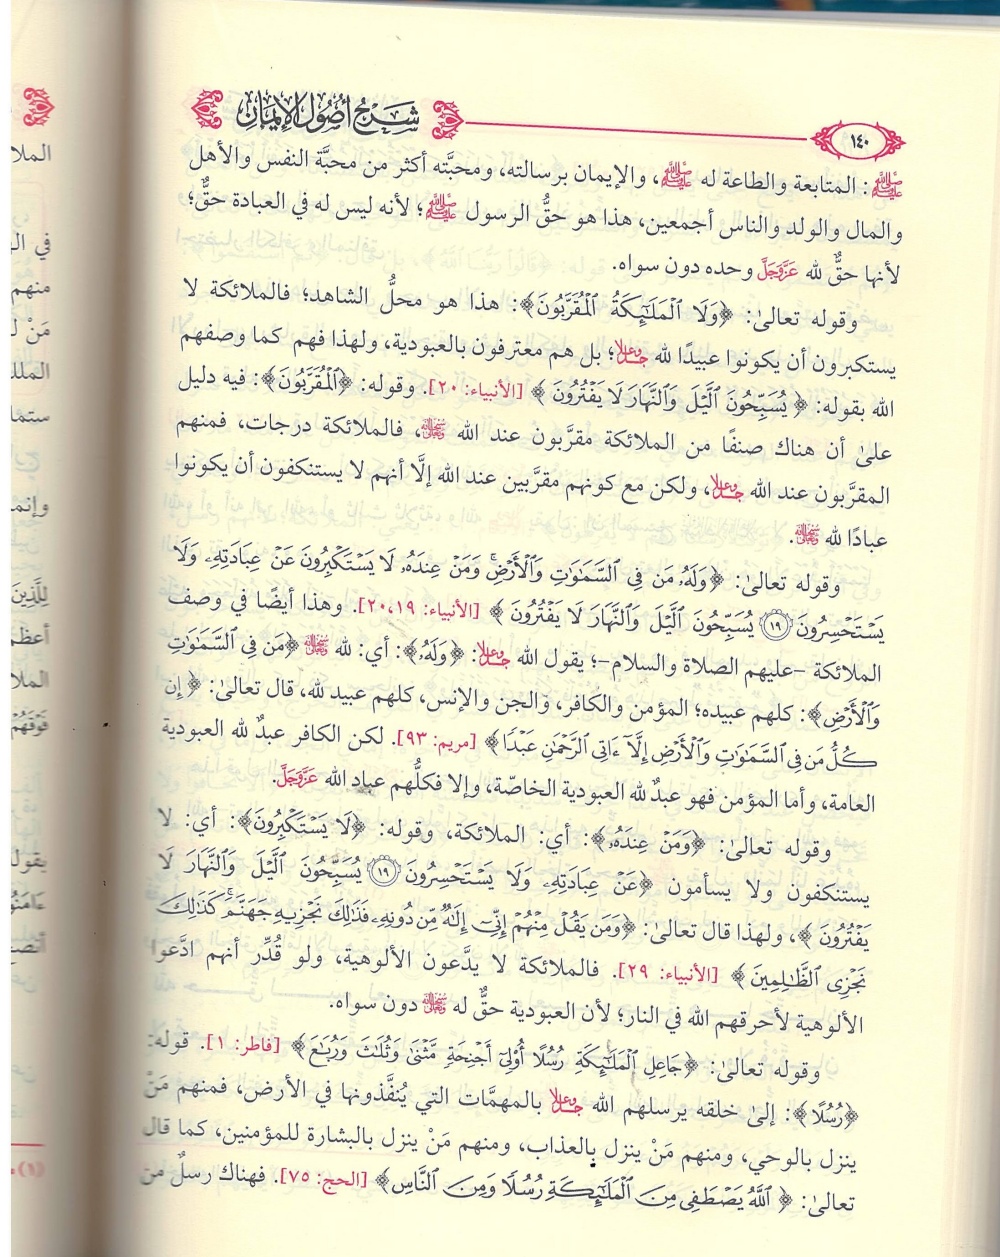 شرح أصول الإيمان
١٤٠
ﷺ: المتابعة والطاعة له ﷺ، والإيمان برسالته، ومحبَّته أكثر من محبَّة النفس والأهل
والمال والولد والناس أجمعين، هذا هو حقُّ الرسول ﷺ؛ لأنه ليس له في العبادة حقٌّ؛
لأنها حقٌّ لله عَزَّوَجَلَّ وحده دون سواه.
وقوله تعالىٰ: ﴿وَلَا ٱلْمَلَٰٓئِكَةُ ٱلْمُقَرَّبُونَ﴾: هذا هو محلُّ الشاهد؛ فالملائكة لا
يستكبرون أن يكونوا عبيدًا لله جَلَّوَعَلَا؛ بل هم معترفون بالعبودية، ولهذا فهم كما وصفهم
الله بقوله: ﴿يُسَبِّحُونَ ٱلَّيْلَ وَٱلنَّهَارَ لَا يَفْتُرُونَ﴾ [الأنبياء: ٢٠]. وقوله: ﴿ٱلْمُقَرَّبُونَ﴾: فيه دليل
علىٰ أن هناك صنفًا من الملائكة مقرَّبون عند الله سُبْحَانَهُوَتَعَالَىٰ، فالملائكة درجات، فمنهم
المقرَّبون عند الله جَلَّوَعَلَا، ولكن مع كونهم مقرَّبين عند الله إلَّا أنهم لا يستنكفون أن يكونوا
عبادًا لله سُبْحَانَهُوَتَعَالَىٰ.
وقوله تعالىٰ: ﴿وَلَهُۥ مَن فِى ٱلسَّمَٰوَٰتِ وَٱلْأَرْضِ ۚ وَمَنْ عِندَهُۥ لَا يَسْتَكْبِرُونَ عَنْ عِبَادَتِهِۦ وَلَا
يَسْتَحْسِرُونَ ۝١٩ يُسَبِّحُونَ ٱلَّيْلَ وَٱلنَّهَارَ لَا يَفْتُرُونَ﴾ [الأنبياء: ١٩،٢٠]. وهذا أيضًا في وصف
الملائكة -عليهم الصلاة والسلام-؛ يقول الله جَلَّوَعَلَا: ﴿وَلَهُۥ﴾: أي: لله سُبْحَانَهُوَتَعَالَىٰ ﴿مَن فِى ٱلسَّمَٰوَٰتِ
وَٱلْأَرْضِ﴾: كلهم عبيده؛ المؤمن والكافر، والجن والإنس، كلهم عبيد لله، قال تعالىٰ: ﴿إِن
كُلُّ مَن فِى ٱلسَّمَٰوَٰتِ وَٱلْأَرْضِ إِلَّآ ءَاتِى ٱلرَّحْمَٰنِ عَبْدًا﴾ [مريم: ٩٣]. لكن الكافر عبدٌ لله العبودية
العامة، وأما المؤمن فهو عبدٌ لله العبودية الخاصّة، وإلا فكلُّهم عباد الله عَزَّوَجَلَّ.
وقوله تعالىٰ: ﴿وَمَنْ عِندَهُۥ﴾: أي: الملائكة، وقوله: ﴿لَا يَسْتَكْبِرُونَ﴾: أي: لا
يستنكفون ولا يسأمون ﴿عَنْ عِبَادَتِهِۦ وَلَا يَسْتَحْسِرُونَ ۝١٩ يُسَبِّحُونَ ٱلَّيْلَ وَٱلنَّهَارَ لَا
يَفْتُرُونَ﴾، ولهذا قال تعالىٰ: ﴿وَمَن يَقُلْ مِنْهُمْ إِنِّىٓ إِلَٰهٌ مِّن دُونِهِۦ فَذَٰلِكَ نَجْزِيهِ جَهَنَّمَ ۚ كَذَٰلِكَ
نَجْزِى ٱلظَّٰلِمِينَ﴾ [الأنبياء: ٢٩]. فالملائكة لا يدَّعون الألوهية، ولو قُدِّر أنهم ادَّعوا
الألوهية لأحرقهم الله في النار؛ لأن العبودية حقٌّ له سُبْحَانَهُوَتَعَالَىٰ دون سواه.
وقوله تعالىٰ: ﴿جَاعِلِ ٱلْمَلَٰٓئِكَةِ رُسُلًا أُو۟لِىٓ أَجْنِحَةٍ مَّثْنَىٰ وَثُلَٰثَ وَرُبَٰعَ﴾ [فاطر: ١]. قوله:
﴿رُسُلًا﴾: إلىٰ خلقه يرسلهم الله جَلَّوَعَلَا بالمهمَّات التي يُنفَّذونها في الأرض، فمنهم مَنْ
ينزل بالوحي، ومنهم مَنْ ينزل بالعذاب، ومنهم مَنْ ينزل بالبشارة للمؤمنين، كما قال
تعالىٰ: ﴿ٱللَّهُ يَصْطَفِى مِنَ ٱلْمَلَٰٓئِكَةِ رُسُلًا وَمِنَ ٱلنَّاسِ﴾ [الحج: ٧٥]. فهناك رسلٌ من